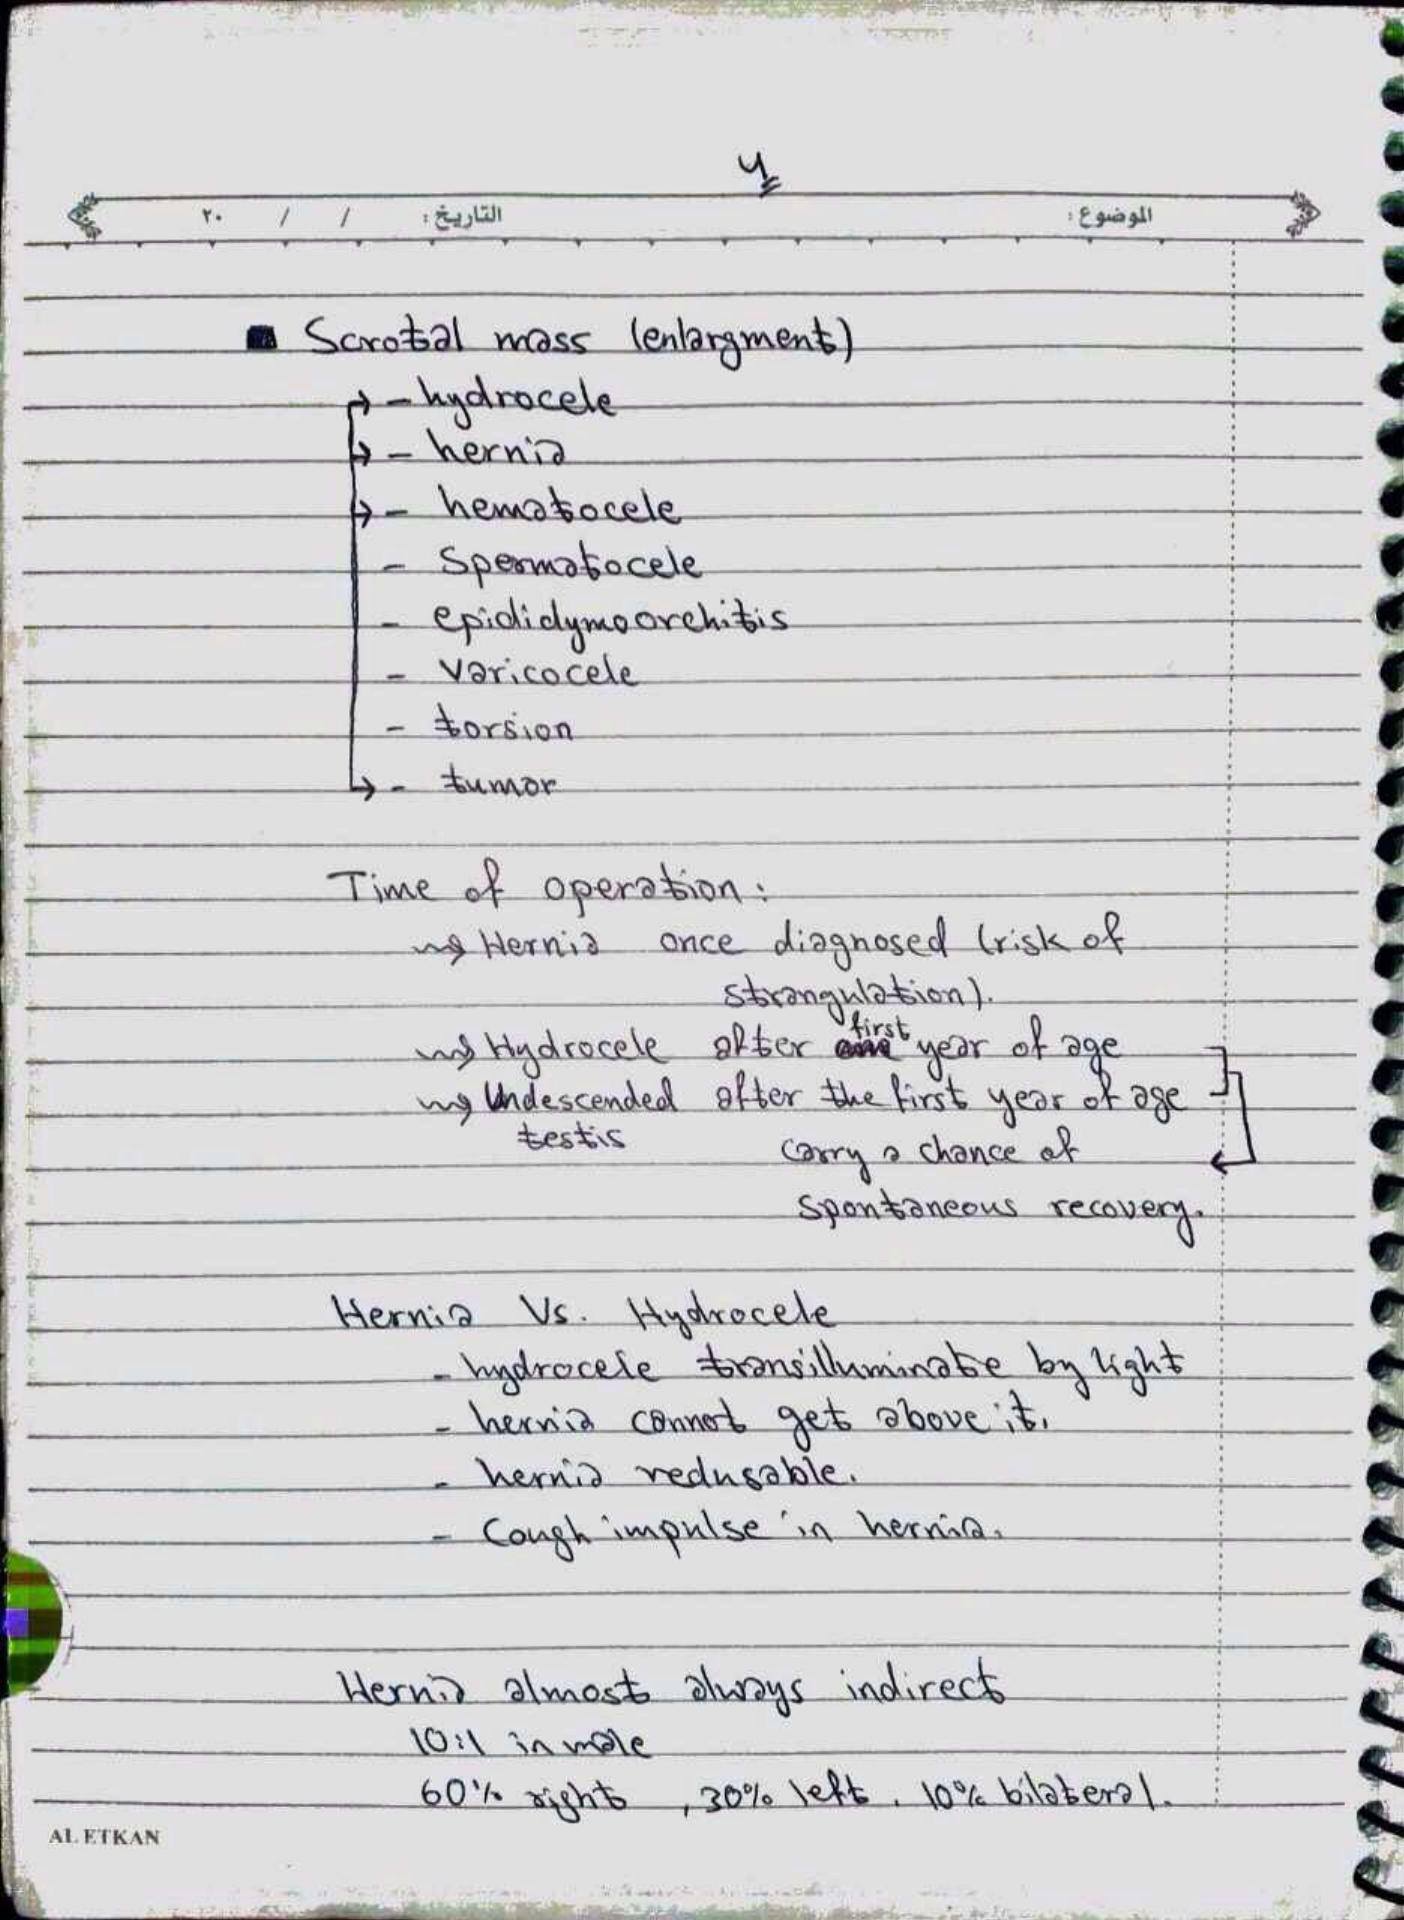 4
الموضوع: التاريخ: / / ٢٠
■ Scrotal mass (enlargment)
→ - hydrocele
→ - hernia
→ - hematocele
- Spermatocele
- epididymoorchitis
- Varicocele
- torsion
→ - tumor
Time of operation:
Hernia once diagnosed (risk of
strangulation).
Hydrocele after first year of age
Undescended after the first year of age
testis carry a chance of
spontaneous recovery.
Hernia Vs. Hydrocele
- hydrocele transilluminate by light
- hernia cannot get above it.
- hernia redusable.
- Cough impulse in hernia.
Hernia almost always indirect
10:1 in male
60% right , 30% left . 10% bilateral.
AL ETKAN